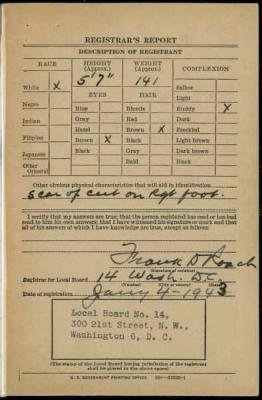 REGISTRAR'S REPORT
DESCRIPTION OF REGISTRANT
RACE HEIGHT (Approx.) WEIGHT (Approx.) COMPLEXION
5'7" 141
White X Sallow
EYES HAIR Light
Negro Blue Blonde Ruddy X
Indian Gray Red Dark
Hazel Brown X Freckled
Filipino Brown X Black Light brown
Japanese Black Gray Dark brown
Other Bald Black
Oriental
Other obvious physical characteristics that will aid in identification
Scar of cut on Rgt foot.
I certify that my answers are true; that the person registered has read or has had
read to him his own answers; that I have witnessed his signature or mark and that
all of his answers of which I have knowledge are true, except as follows:
Frank D Roach
(Signature of registrar)
Registrar for Local Board 14 Wash. D.C.
Date of registration Jany 4-1943
Local Board No. 14,
300 21st Street, N. W.,
Washington 6, D. C.
(The stamp of the Local Board having jurisdiction of the registrant
shall be placed in the above space)
U. S. GOVERNMENT PRINTING OFFICE